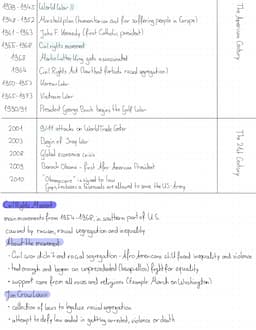 1939-1945 World War II
1948-1952 Marshall plan (humanitarian aid for suffering people in Europe)
1961-1963 John F. Kennedy (first Catholic president)
1955-1968 Civil rights movement
1968 Martin Luther King gets assassinated
1964 Civil Rights Act (law that forbids racial segregation)
1950-1953 Korean War
1965-1973 Vietnam War
1990/91 President George Bush begins the Gulf War
The American Century
2001 9/11 attacks on World Trade Center
2003 Begin of Iraq War
2008 Global economic crisis
2009 Barack Obama - first Afro American President
2010 "Obamacare" is signed to law
Gays, lesbians & bisexuals are allowed to serve the US-Army
The 21st Century
Civil Rights Movement
main movements from 1954-1968, in southern part of U.S.
caused by racism, racial segregation and inequality
About the movement
- Civil war didn't end racial segregation - Afro Americans still faced inequality and violence
- had enough and began an unprecedented fight for equality
- support came from all races and religions (Example March on Washington)
Jim Crow Laws
- collection of laws to legalize racial segregation
- attempt to defy law ended in getting arrested, violence or death